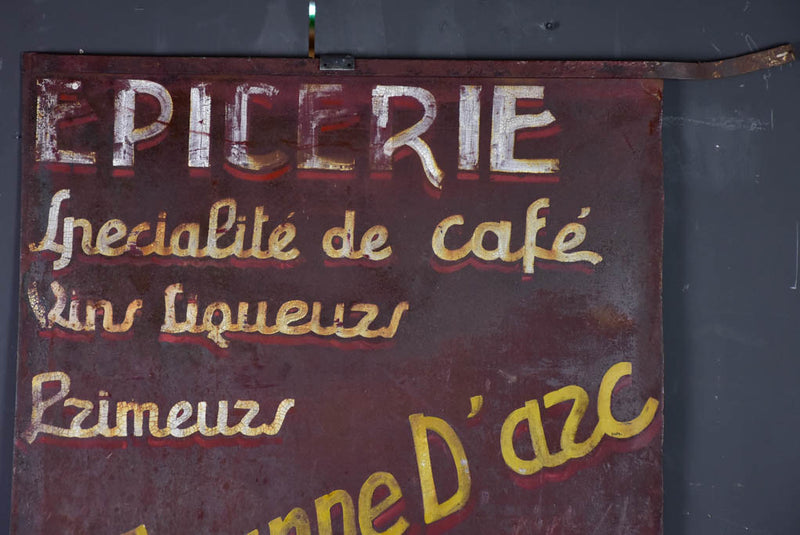 EPICERIE
Specialité de café
Vins Liqueurs
Primeurs
D'arc